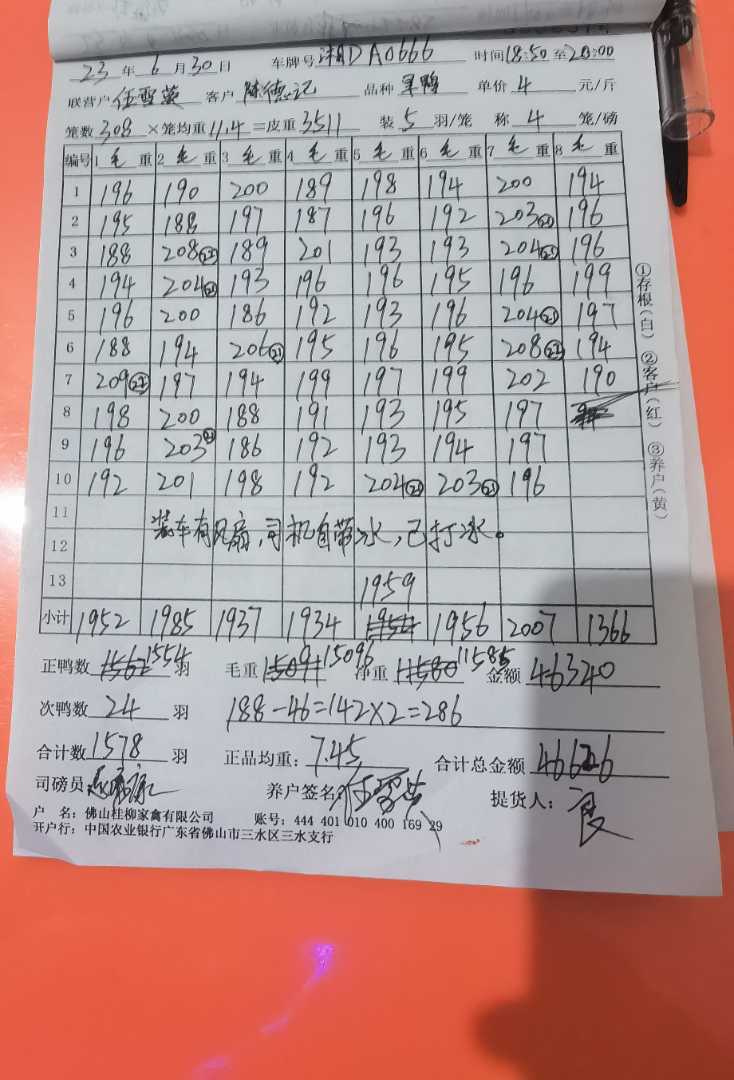 23 年 6 月 30 日 车牌号 湘D A0666 时间 18:50 至 20:00
联营户 任雪英 客户 陈德记 品种 旱鸭 单价 4 元/斤
笼数 308 ×笼均重 11.4 =皮重 3511 装 5 羽/笼 称 4 笼/磅
编号 1 毛 重 2 毛 重 3 毛 重 4 毛 重 5 毛 重 6 毛 重 7 毛 重 8 毛 重
1 196 190 200 189 198 194 200 194
2 195 188 197 187 196 192 203㉑ 196
3 188 208㉒ 189 201 193 193 204㉑ 196
4 194 204㉑ 193 196 196 195 196 199
5 196 200 186 192 193 196 204㉑ 197
6 188 194 206㉑ 195 196 195 208㉒ 194
7 209㉒ 197 194 199 197 199 202 190
8 198 200 188 191 193 195 197
9 196 203㉑ 186 192 193 194 197
10 192 201 198 192 204㉑ 203㉑ 196
11
装车有风扇,司机自带冰,已打冰。
12
13 1959
小计 1952 1985 1937 1934 1954 1956 2007 1366
正鸭数 1562 1554 羽 毛重 15091 15096 净重 11580 11585 金额 46340
次鸭数 24 羽 188-46=142×2=286
合计数 1578 羽 正品均重: 7.45 合计总金额 46626
司磅员 养户签名 任雪英 提货人: 良
户 名: 佛山桂柳家禽有限公司 账号: 444 401 010 400 169 29
开户行: 中国农业银行广东省佛山市三水区三水支行
①存根(白) ②客户(红) ③养户(黄)